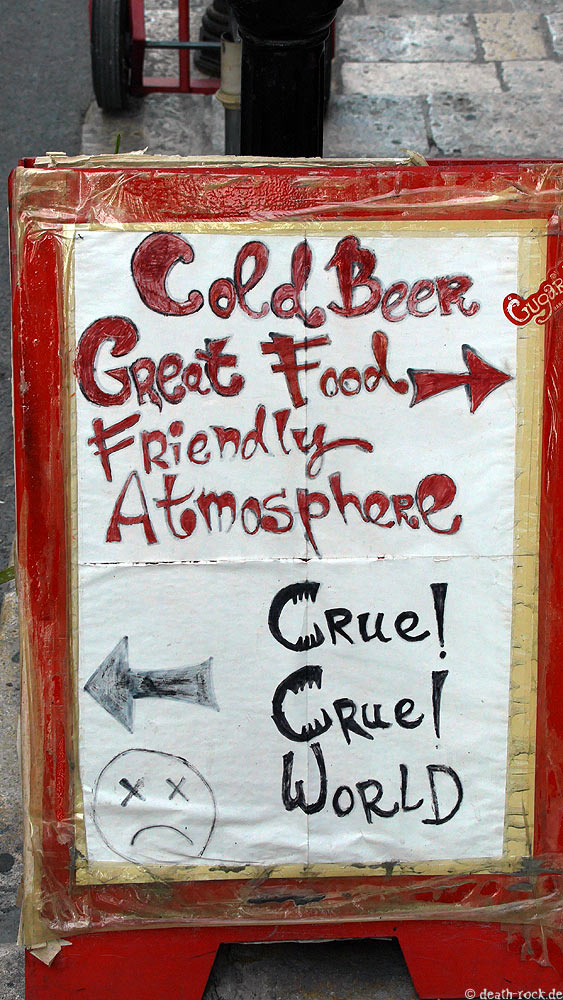 Cold Beer
Great Food
Friendly
Atmosphere
Crue!
Crue!
World
© death-rock.de